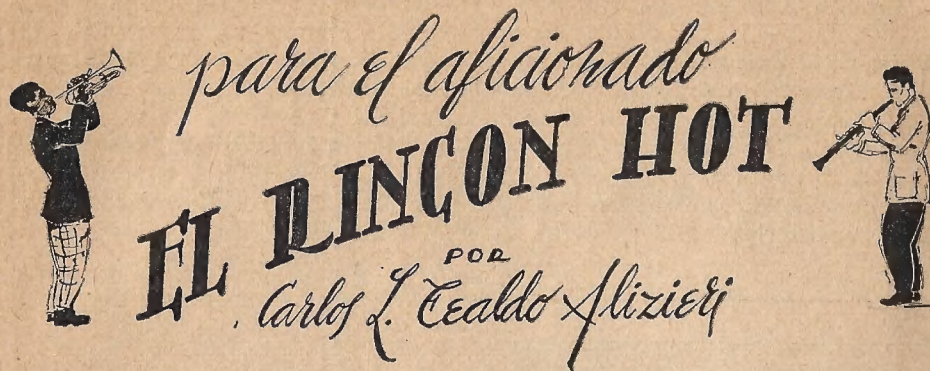 para el aficionado
EL RINCON HOT
POR
Carlos L. Tealdo Alizieri